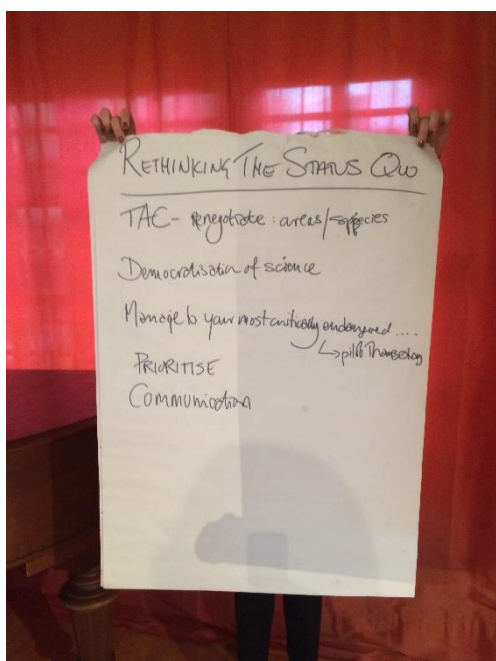 RETHINKING THE STATUS QUO
TAC - renegotiate: areas/species
Democratisation of science
Manage to your most critically endangered ....
PRIORITISE
Communication